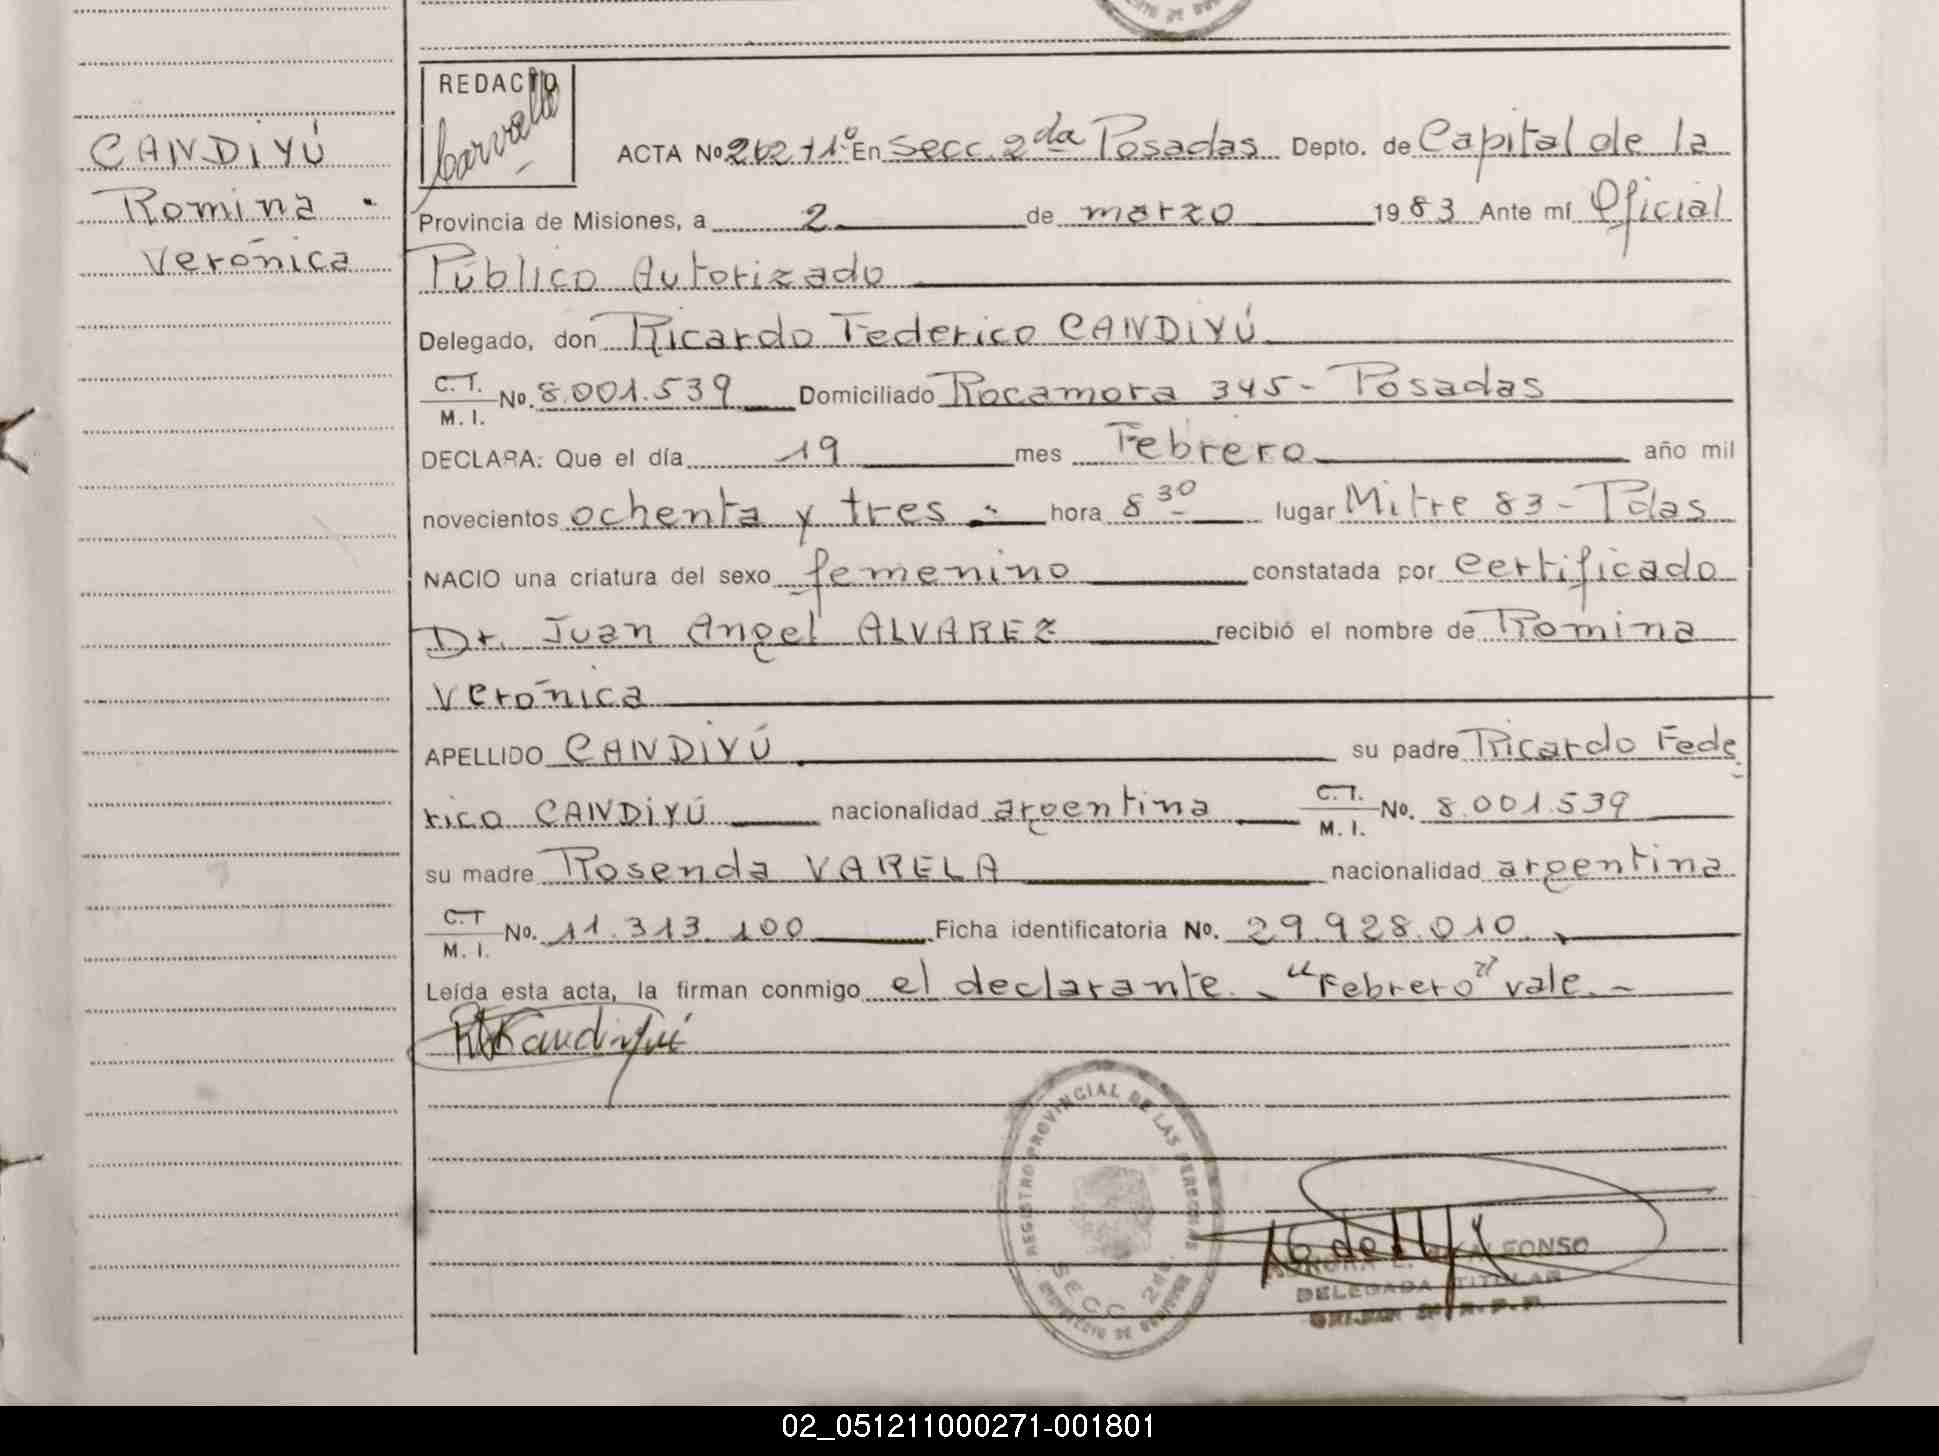 CANDIYÚ
Romina
Verónica
REDACTO
Carvallo
ACTA No 262 T 1º En Secc. 2da Posadas Depto. de Capital de la
Provincia de Misiones, a 2 de marzo 1983 Ante mí Oficial
Público Autorizado
Delegado, don Ricardo Federico CANDIYÚ
C.I. M. I. No. 8.001.539 Domiciliado Rocamora 345 - Posadas
DECLARA: Que el día 19 mes Febrero año mil
novecientos ochenta y tres hora 8 30 lugar Mitre 83 - Pdas
NACIO una criatura del sexo femenino constatada por certificado
Dr. Juan Angel ALVAREZ recibió el nombre de Romina
Verónica
APELLIDO CANDIYÚ su padre Ricardo Fede
rico CANDIYÚ nacionalidad argentina C.I. M. I. No. 8.001.539
su madre Rosenda VARELA nacionalidad argentina
C.I M. I. No. 11.313.100 Ficha identificatoria No. 29.928.010
Leída esta acta, la firman conmigo el declarante. "Febrero" vale.-
Candiyú
REGISTRO PROVINCIAL DE LAS PERSONAS
SECC 2da.
DELEGADA TITULAR
02_051211000271-001801